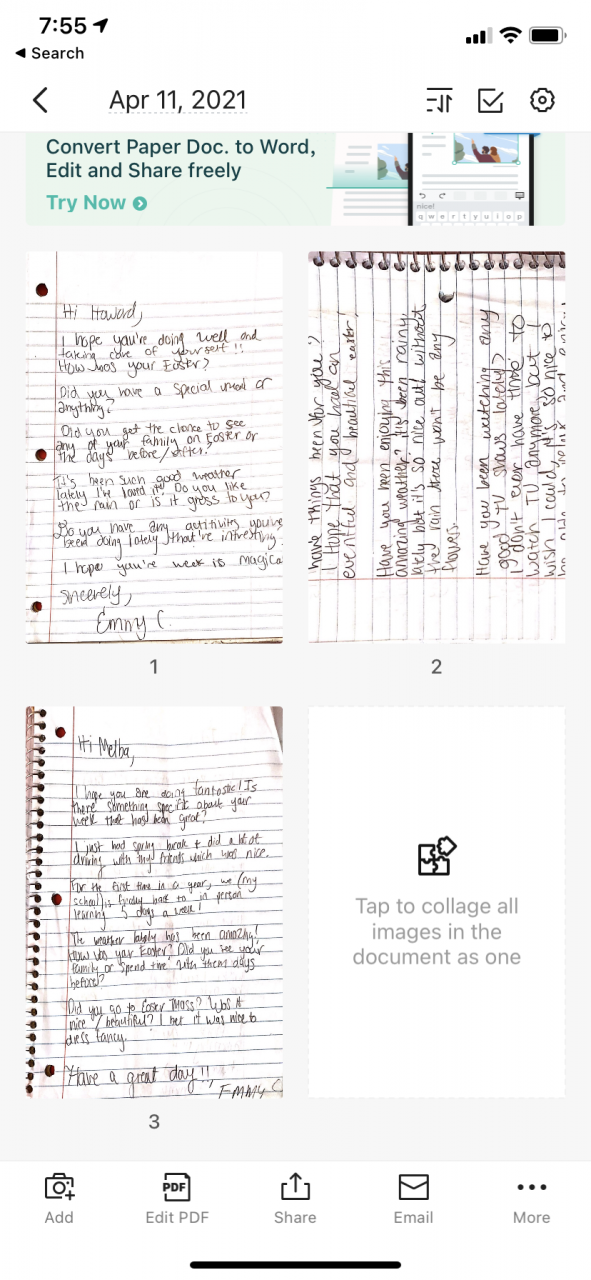 7:55
Search
Apr 11, 2021
Convert Paper Doc. to Word,
Edit and Share freely
Try Now
nice!
q w e r t y u i o p
Hi Howard,
I hope you're doing well and
taking care of yourself !!
How was your Easter?
Did you have a special meal or
anything?
Did you get the chance to see
any of your family on Easter or
the days before/after?
It's been such good weather
lately I've loved it! Do you like
the rain or is it gross to you?
Do you have any you've
been doing lately that're
I hope you're week is magica
Sincerely,
Emmy C.
1
have things been for you?
I hope that you had an
eventful and beautiful easter!
Have you been enjoying this
annoying weather? it's been rainy
lately but it's so nice out without
they rain there won't be any
flowers.
Have you been watching any
good TV shows lately?
I don't ever have time to
watch TV anymore but I
wish I could, it's so nice to
2
Hi Melba,
I hope you are doing fantastic! Is
there something specific about your
week that has been great?
I just had spring break + did a lot of
driving with my friends which was nice.
For the first time in a year, we (my
school) is finally back to in person
learning 5 days a week!
The weather lately has been amazing!
How was your Easter? Did you see your
family or spend time with them days
before?
Did you go to Easter Mass? Was it
nice / beautiful? I bet it was nice to
dress fancy.
Have a great day!!
EMMY C
3
Tap to collage all
images in the
document as one
Add
PDF
Edit PDF
Share
Email
More